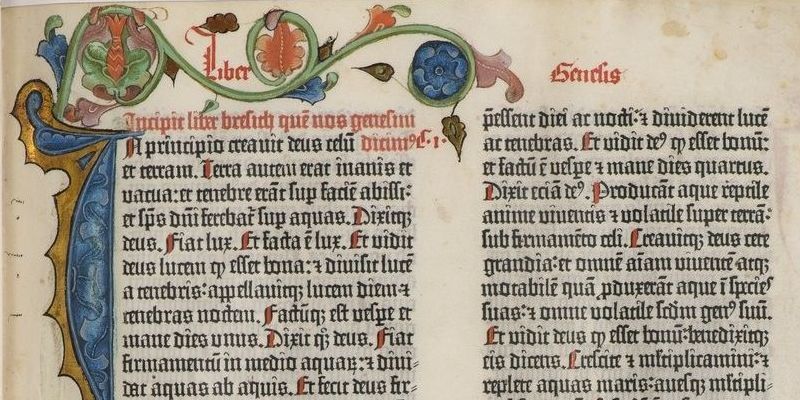 Liber
Genesis
Incipit liber bresich quē nos genesim
In principio creavit deus celū dicim⁹ C. 1.
et terram. Terra autem erat inanis et
vacua: et tenebre erāt sup faciē abissi:
et sp̄s dn̄i ferebat̄ sup aquas. Dixitqꝫ
deus. Fiat lux. Et facta ē lux. Et vidit
deus lucem qꝫ esset bona: ⁊ divisit lucē
a tenebris: appellavitqꝫ lucem diem ⁊
tenebras noctem. Factūqꝫ est vespe et
mane dies unus. Dixit qꝫ deus. Fiat
firmamentū in medio aquaꝝ: ⁊ divi⸗
dat aquas ab aquis. Et fecit deus fir⸗
p̄essent diei ac nocti: ⁊ dividerent lucē
ac tenebras. Et vidit de⁹ qꝫ esset bonū:
et factū ē vespe ⁊ mane dies quartus.
Dixit eciā de⁹. Producāt aque reptile
anime viventis ⁊ volatile super terrā:
sub firmamēto celi. Creavitqꝫ deus cete
grandia: et omnē aīam viventē atqꝫ
motabilē quā ꝓduxerāt aque ī species
suas: ⁊ omne volatile scdm gen⁹ suū.
Et vidit deus qꝫ esset bonū: benedixitqꝫ
eis dicens. Crescite ⁊ mltiplicamini: ⁊
replete aquas maris: avesqꝫ mltipli⸗